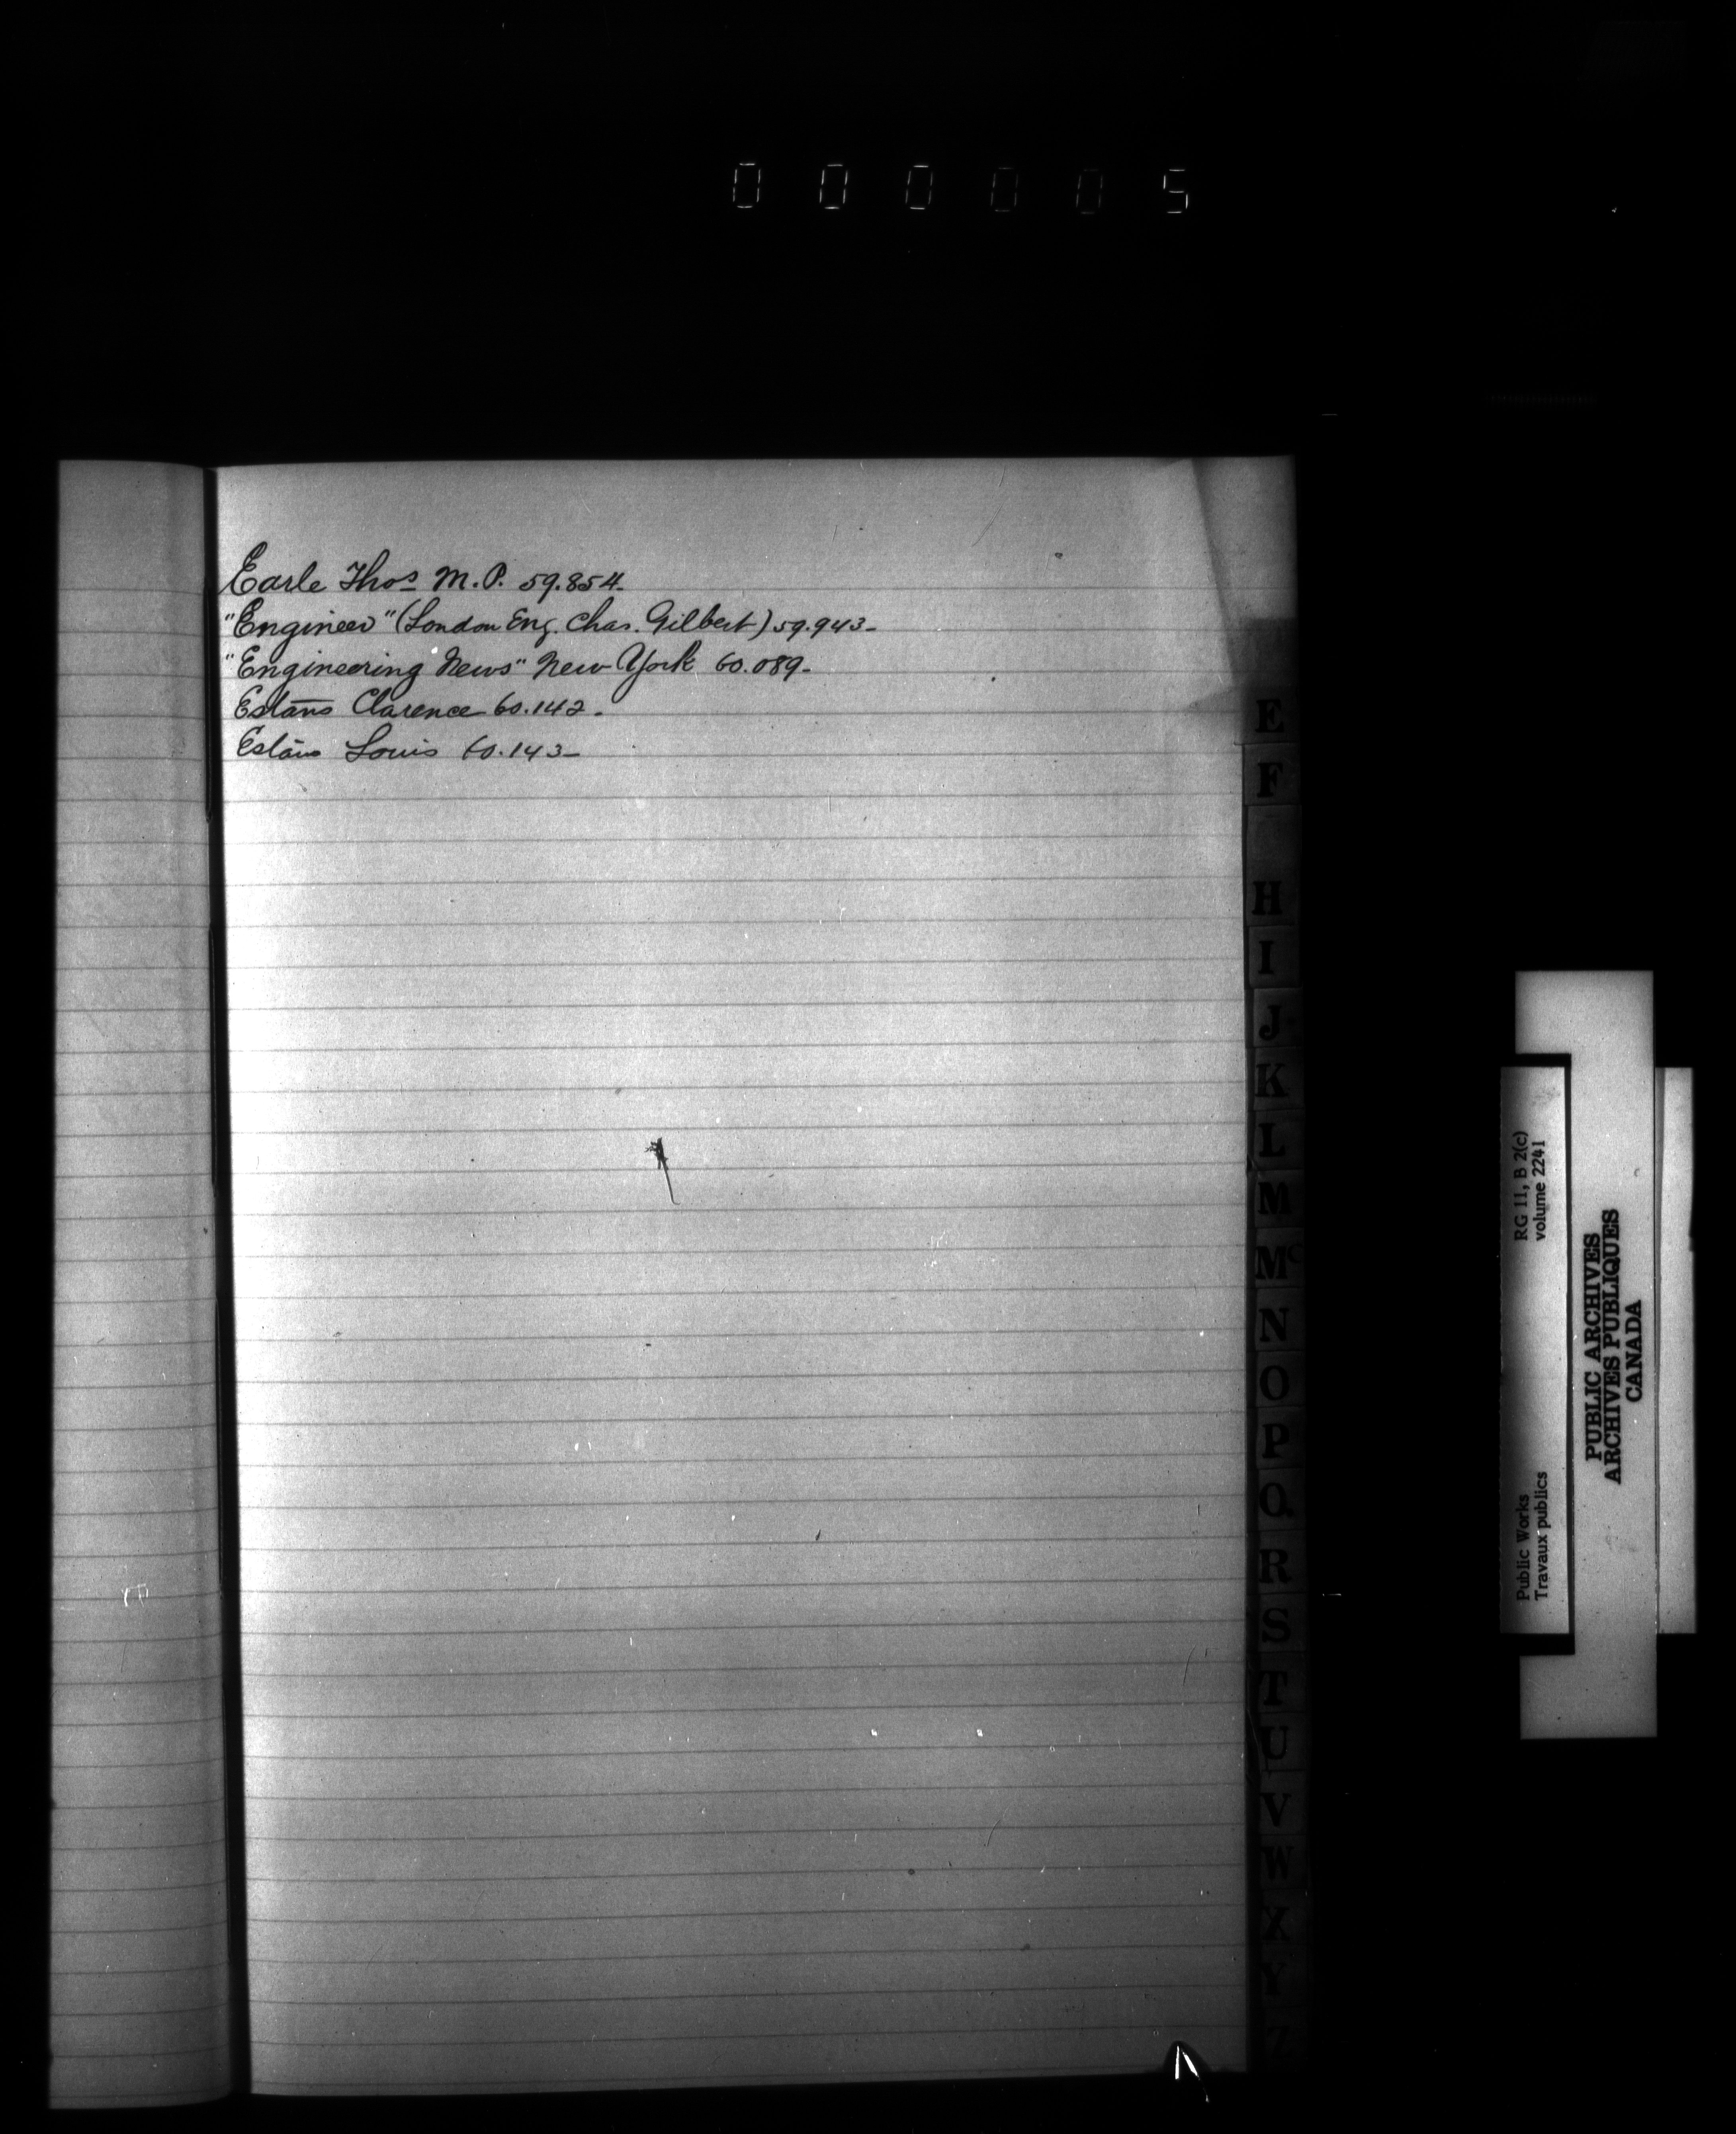 000005
Earle Thos M.P. 59.854-
"Engineer" (London Eng. Chas. Gilbert) 59.943-
"Engineering News" New York 60.089-
Clarence 60.142-
Louis 60.143-
E
F
H
I
J
K
L
M
Mc
N
O
P
Q
R
S
T
U
V
W
X
Y
Z
RG 11, B 2(c)
volume 2241
Public Works
Travaux publics
PUBLIC ARCHIVES
ARCHIVES PUBLIQUES
CANADA